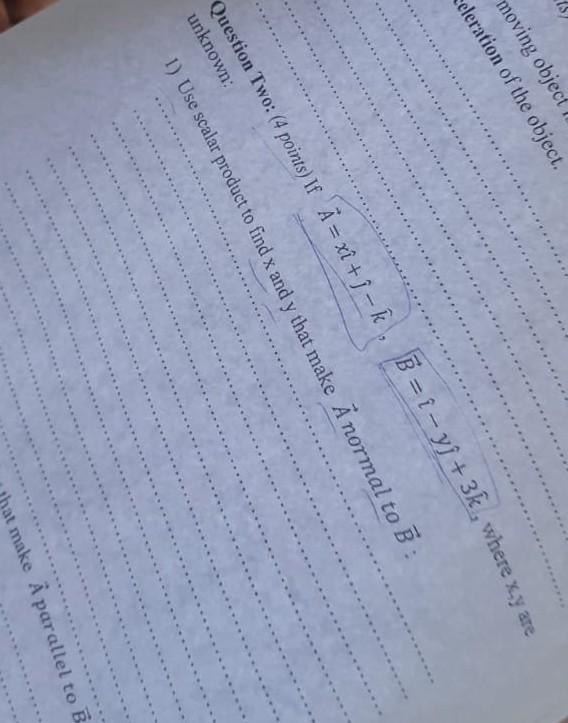 moving object
celeration of the object.
Question Two: (4 points) If A⃗ = xî + ĵ − k̂ , B⃗ = î − yĵ + 3k̂ , where x,y are
unknown:
1) Use scalar product to find x and y that make A⃗ normal to B⃗ :
that make A⃗ parallel to B⃗